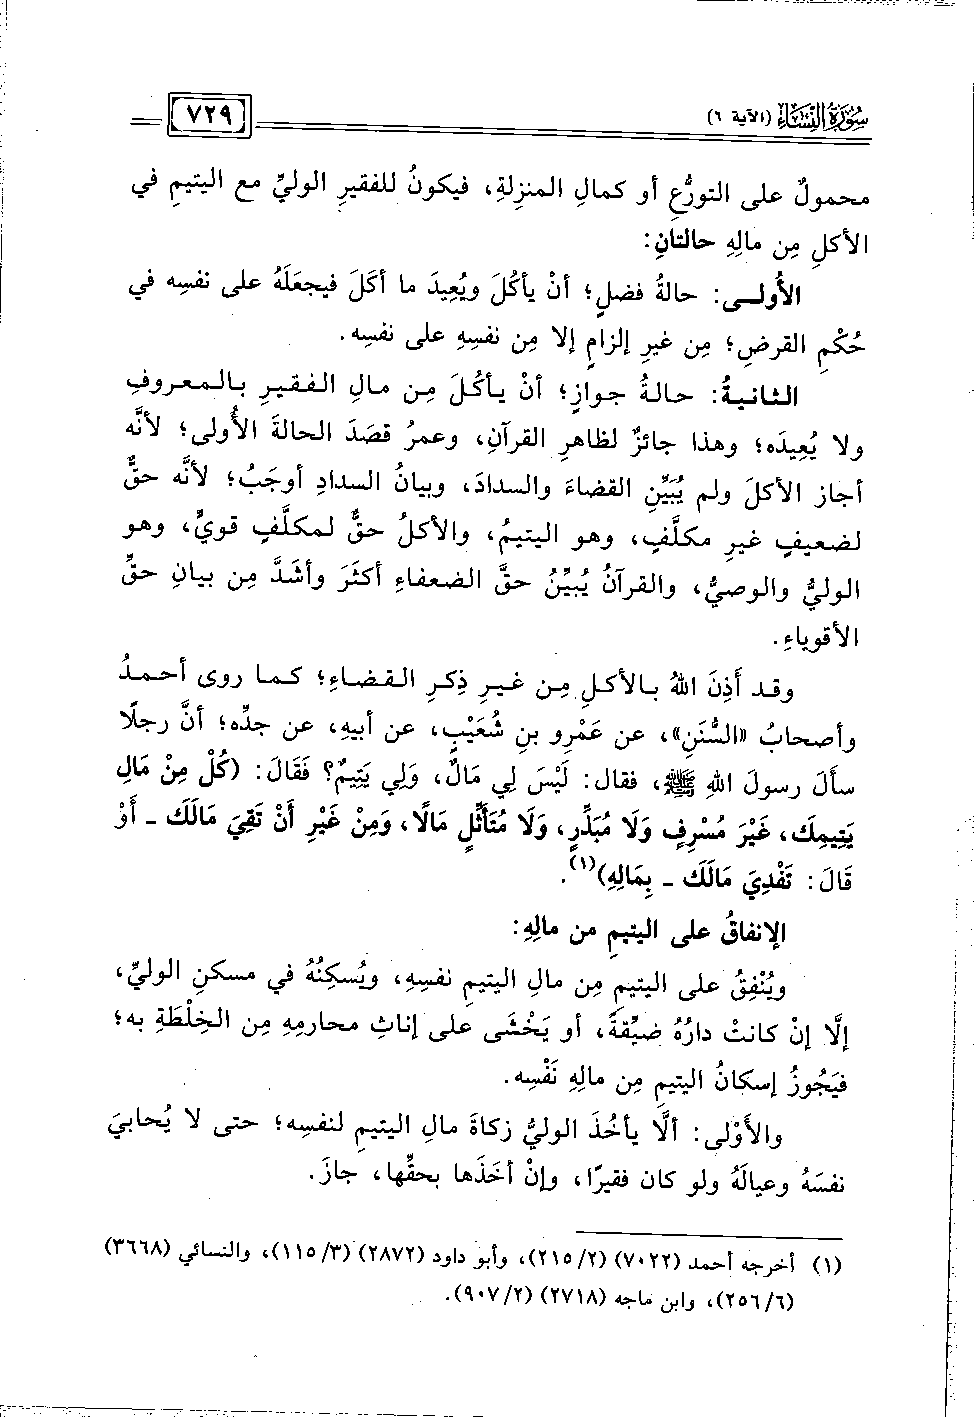 سُورَةُ النِّسَاءِ (الآية ٦)
٧٢٩
محمولٌ على التورُّعِ أو كمالِ المنزِلةِ، فيكونُ للفقيرِ الوليِّ مع اليتيمِ في
الأكلِ مِن مالِهِ حالتانِ:
الأُولى: حالةُ فضلٍ؛ أنْ يأكُلَ ويُعِيدَ ما أكَلَ فيجعَلَهُ على نفسِه في
حُكْمِ القرضِ؛ مِن غيرِ إلزامٍ إلا مِن نفسِهِ على نفسِه.
الثانيةُ: حالةُ جوازٍ؛ أنْ يأكُلَ مِن مالِ الفقيرِ بالمعروفِ
ولا يُعِيدَه؛ وهذا جائزٌ لظاهرِ القرآنِ، وعمرُ قصَدَ الحالةَ الأُولى؛ لأنَّه
أجاز الأكلَ ولم يُبيِّنِ القضاءَ والسدادَ، وبيانُ السدادِ أوجَبُ؛ لأنَّه حقٌّ
لضعيفٍ غيرِ مكلَّفٍ، وهو اليتيمُ، والأكلُ حقٌّ لمكلَّفٍ قويٍّ، وهو
الوليُّ والوصيُّ، والقرآنُ يُبيِّنُ حقَّ الضعفاءِ أكثَرَ وأشَدَّ مِن بيانِ حقِّ
الأقوياءِ.
وقد أَذِنَ اللهُ بالأكلِ مِن غيرِ ذِكرِ القضاءِ؛ كما روى أحمدُ
وأصحابُ «السُّنَنِ»، عن عَمْرِو بنِ شُعَيْبٍ، عن أبيهِ، عن جدِّه؛ أنَّ رجلًا
سألَ رسولَ اللهِ ﷺ، فقال: لَيْسَ لِي مَالٌ، وَلِي يَتِيمٌ؟ فَقَالَ: (كُلْ مِنْ مَالِ
يَتِيمِكَ، غَيْرَ مُسْرِفٍ وَلَا مُبَذِّرٍ، وَلَا مُتَأَثِّلٍ مَالًا، وَمِنْ غَيْرِ أَنْ تَقِيَ مَالَكَ ـ أَوْ
قَالَ: تَفْدِيَ مَالَكَ ـ بِمَالِهِ)(١).
الإنفاقُ على اليتيمِ من مالِهِ:
ويُنْفِقُ على اليتيمِ مِن مالِ اليتيمِ نفسِهِ، ويُسكِنُهُ في مسكنِ الوليِّ،
إلَّا إنْ كانتْ دارُهُ ضيِّقةً، أو يَخْشَى على إناثِ محارمِهِ مِن الخِلْطَةِ به؛
فيَجُوزُ إسكانُ اليتيمِ مِن مالِهِ نَفْسِه.
والأَوْلى: ألَّا يأخُذَ الوليُّ زكاةَ مالِ اليتيمِ لنفسِه؛ حتى لا يُحابيَ
نفسَهُ وعيالَهُ ولو كان فقيرًا، وإنْ أخَذَها بحقِّها، جازَ.
(١) أخرجه أحمد (٧٠٢٢) (٢/٢١٥)، وأبو داود (٢٨٧٢) (٣/١١٥)، والنسائي (٣٦٦٨)
(٦/٢٥٦)، وابن ماجه (٢٧١٨) (٢/٩٠٧).